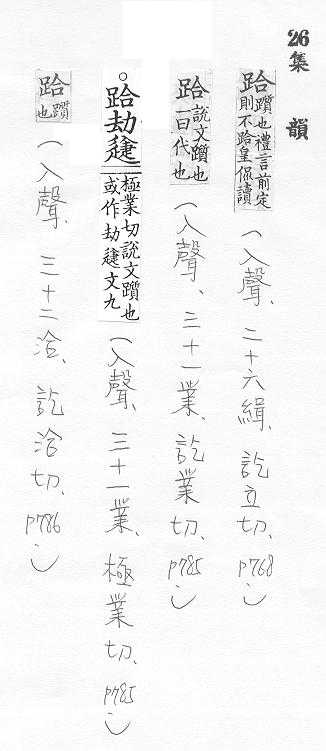 26 集韻
跲 躓也禮言前定則不跲皇侃讀（入聲、二十六緝、訖立切、p768。）
跲 說文躓也一曰代也（入聲、三十一業、訖業切、p785。）
。跲劫躠 極業切說文躓也或作劫躠文九（入聲、三十一業、極業切、p785。）
跲 躓也（入聲、三十二洽、訖洽切、p786。）